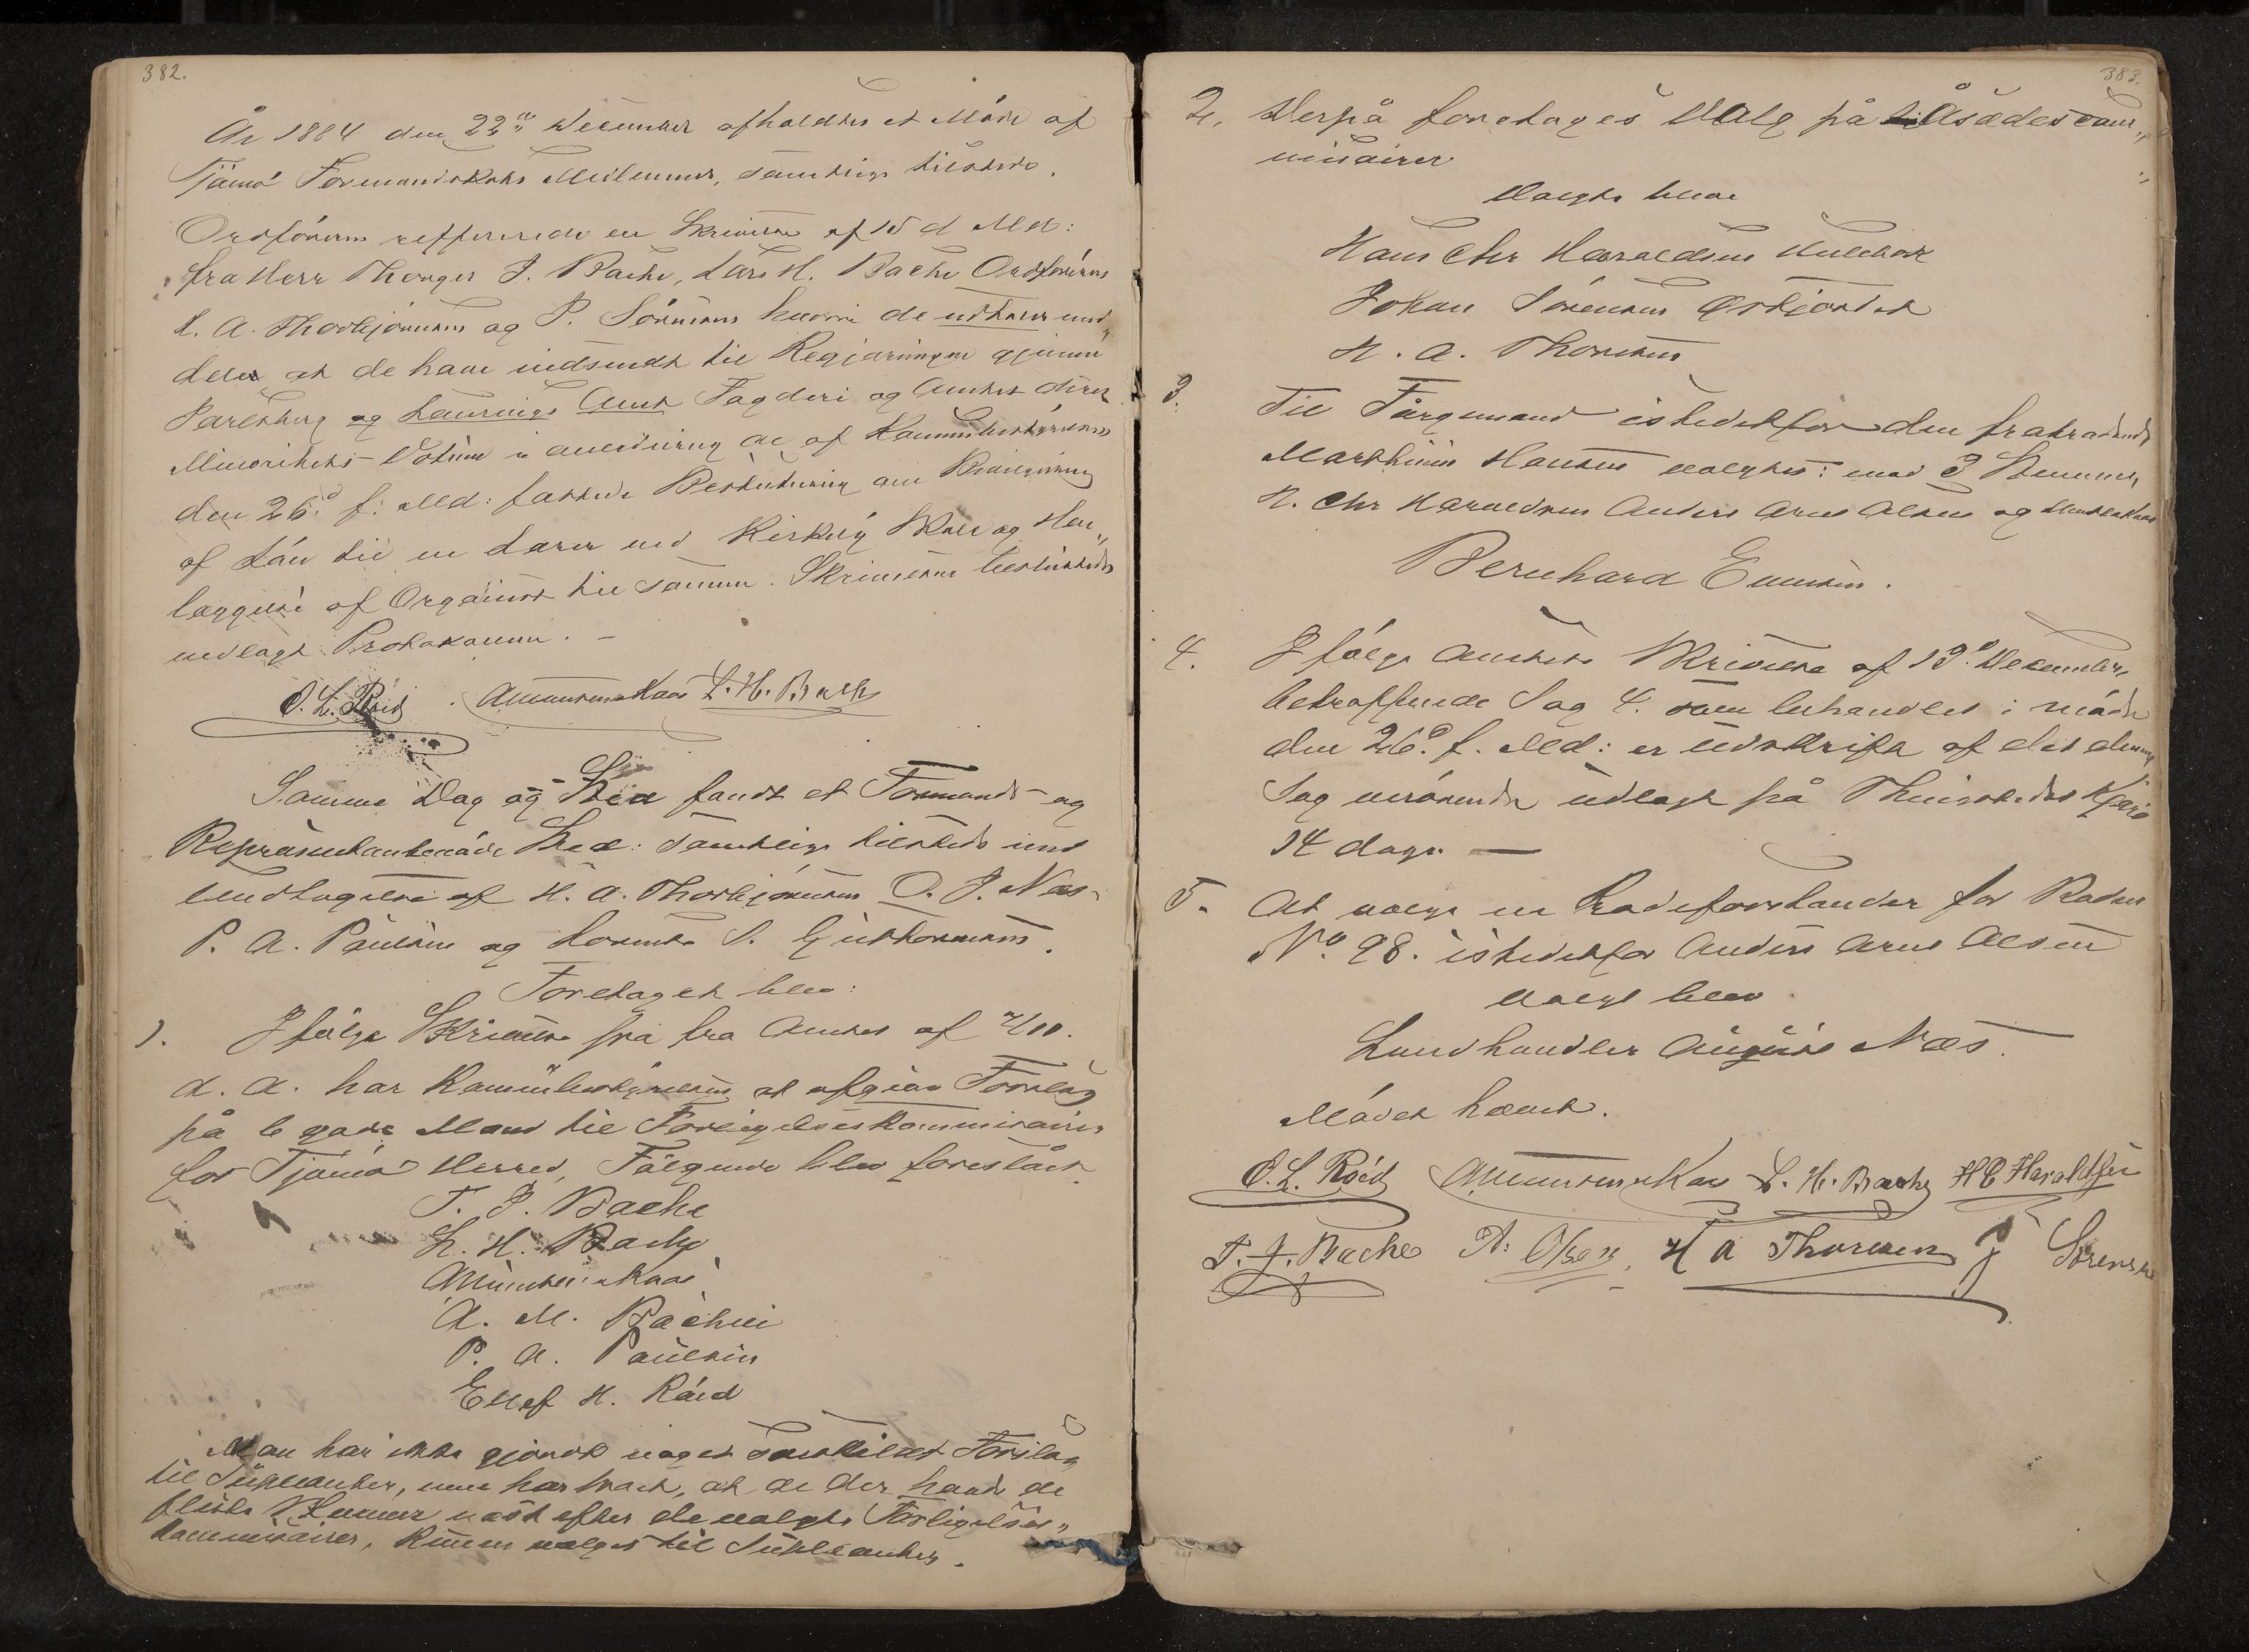 382.
År 1884 den 22de December afholdtes et Møde af
Tjømø Formandskabs Medlemmer, samtlige tilstede.
Ordføreren refererede en Skrivelse af 15 d Md:
fra Herr Thenges J. Bache, Lars H. Bache Ordføreren
H. A. Thorbjørnsens og P. Sørensens hvori de udtaler med„
deler at de have indsendt til Regjeringen gjennem
Jarlsberg og Laurvigs Amt Fogderi og Amtet deres
Minoritets-Votum i anledning af af Kommunebestyrelsens
den 26de f: Md: fattede Beslutning om Bevilgning
af Lån til en Lærer ved Kirkeby Skole og Hen„
læggelse af Organist til samme. Skrivelsen besluttedes
vedlagt Protokollen. —
O. L. Røid Amundsen Kaas L. H. Bache
Samme Dag og Sted fandt et Formands- og
Repræsentantmøde Sted: samtlige tilstede und
undtagelse af H. A. Thorbjørnsen O. J. Næs-
P. A. Paulsen og Lorentz S. Guttormsens.
Foretaget blev:
1. Ifølge Skrivelse fra fra Amtet af 4/10.
d. A. har Kommunebestyrelsen at afgive Forslag
på 6 gode Mænd til Forligelseskommissairer
for Tjømø Herred, Følgende blev foreslået
T. J. Bache
L. H. Bache
Amundsen Kaas
A. M. Bachen
P. A. Paulsen
Ellef H. Røid
Man har ikke gjordt noget særskildt Forslag
til Supleanter, men har tænkt, at de der havde de
fleste Stemmer næst efter de valgte Forligelses„
kommissairer, kunne vælges til Supleanter.
383.
2. Derpå foretoges Valg på Åsædescom„
missairer
Valgte bleve
Hans Chr Haraldsen Hulebak
Johan Sørensen Østgjordet
H. A. Thoresen
3. Til Fårgemand istedetfor den fratrædende
Marthinius Hansen valgtes: med 3 Stemmer,
H. Chr Haraldsen Anders Arne Olsen og
Bernhard Evensen.
4. Ifølge Amtets Skrivelse af 19de December,
betræffende Sag 4. som behandlet i møde
den 26de f. Md: er Udskrift af det denne
Sag verørende udlagt på Thingstedet Kjære
14 dage —
5. At vælge en Rodeforstander for Roden
No. 98. istedetfor Anders Arne Olsen
valgt blev
Landhandler August Næs.
Mødet hævet.
O. L. Røid Amundsen Kaas L. H. Bache H C Haraldsen
T. J. Bache A: Olsen. H A Thoresen J Sørensen